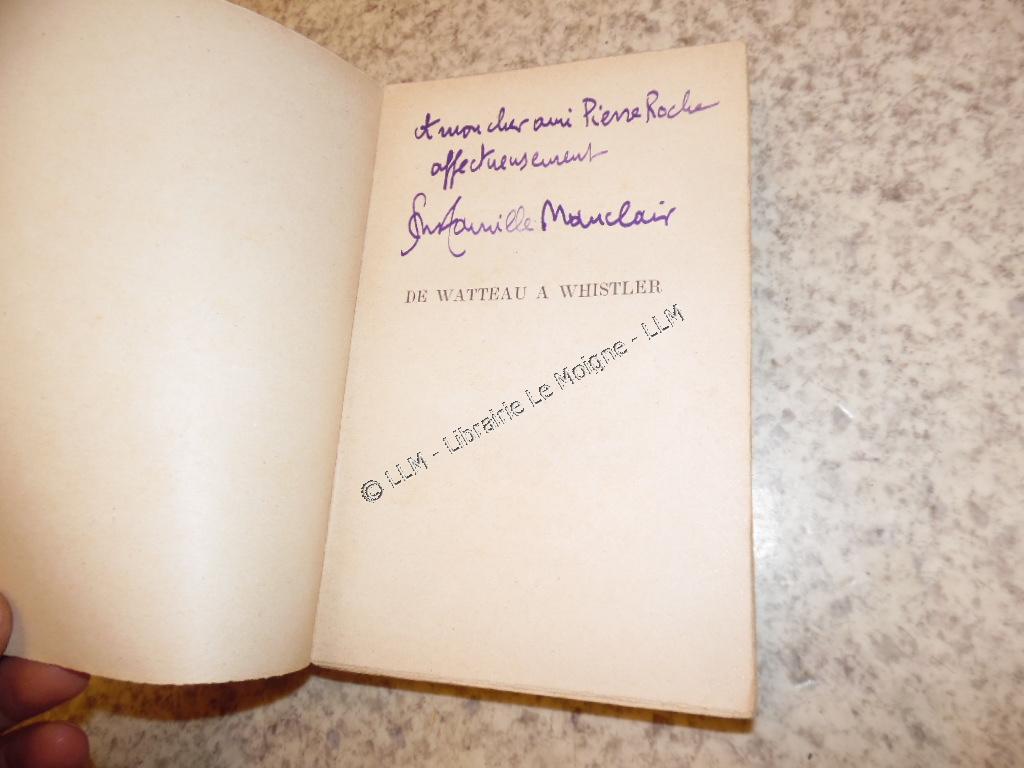 A mon cher ami Pierre Roche
affectueusement
Camille Mauclair
DE WATTEAU A WHISTLER
© LLM - Librairie Le Moigne - LLM